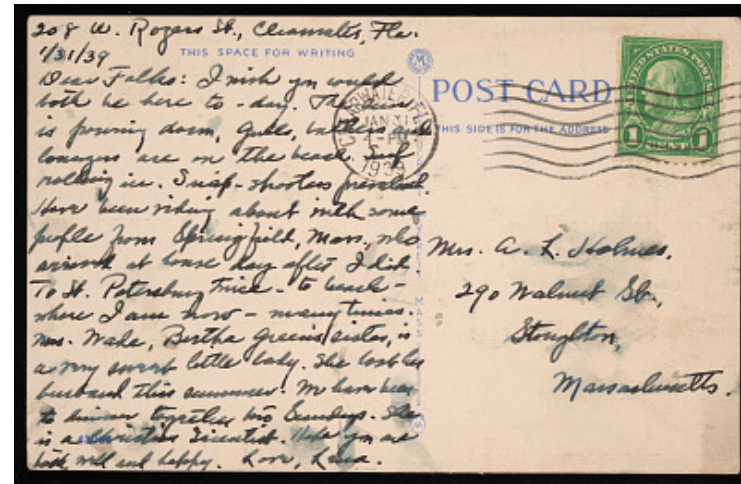 208 W. Rogers St., Clearwater, Fla.
1/31/39
THIS SPACE FOR WRITING
Dear Folks: I wish you would
both be here to-day. The sun
is pouring down, gulls, bathers and
loungers are on the beach. Surf
rolling in. Snap-shooters prevalent.
Have been riding about with some
people from Springfield, Mass., who
arrived at house day after I did,
To St. Petersburg twice - to beach -
where I am now - many times.
Mrs. Wade, Bertha Green's sister, is
a very sweet little lady. She lost her
husband this summer. We have been
to dinner together two Sundays. She
is a Christian Scientist. Hope you are
both well and happy. Love,
POST CARD
THIS SIDE IS FOR THE ADDRESS
CLEARWATER, FLA.
JAN 31
PM
1939
UNITED STATES POSTAGE
1 CENT 1
Mrs. A. L. Holmes,
290 Walnut St.,
Stoughton,
Massachusetts.